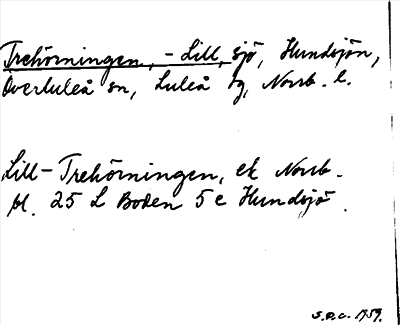 Trehörningen, - Lill, sjö, Hundsjön,
Överluleå sn, Luleå tg, Norrb. l.
Lill-Trehörningen, ek Norrb.
bl. 25 L Boden 5 c Hundsjö.
S.P.C. 1959.